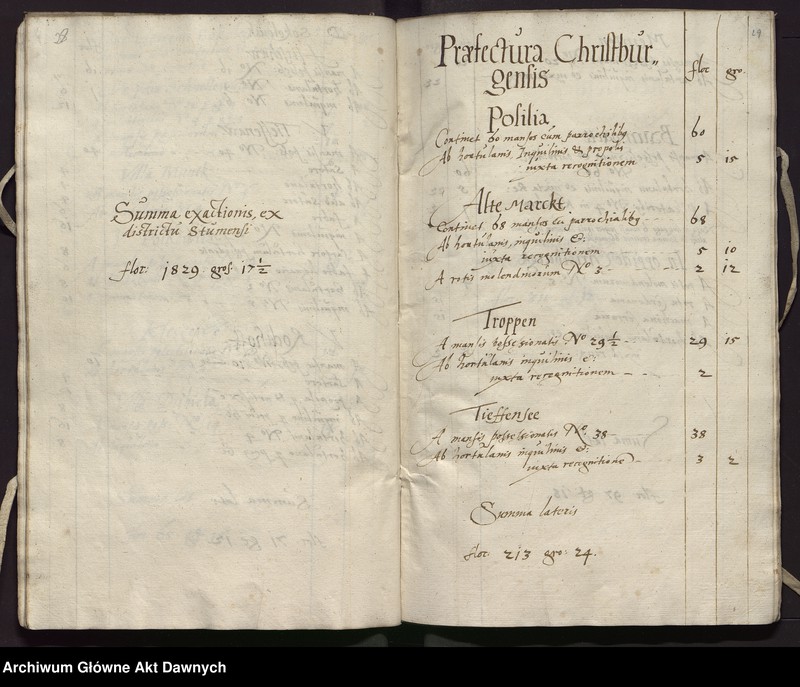 Summa exactionis, ex
districtu Stumensi
flor: 1829 gros: 17 1/2
19
Præfectura Christbur„
gensis
flor gro.
Posilia
Continet 60 mansos cum parrochialibq 60
Ab hortulanis, Inquilinis & propolis
iuxta recognitionem 5 15
Alte Marckt
Continet 68 mansos cū parrochialibq 68
Ab hortulanis, inquilinis &:
iuxta recognitionem 5 10
A rotis molendinorum No 3 2 12
Troppen
A mansis possessionatis No 29 1/2 29 15
Ab hortulanis inquilinis &:
iuxta recognitionem 2
Tieffensee
A mansis possessionatis No. 38 38
Ab hortulanis inquilinis &:
iuxta recognitionē 3 2
Summa lateris
flor: 213 gro: 24.
Archiwum Główne Akt Dawnych